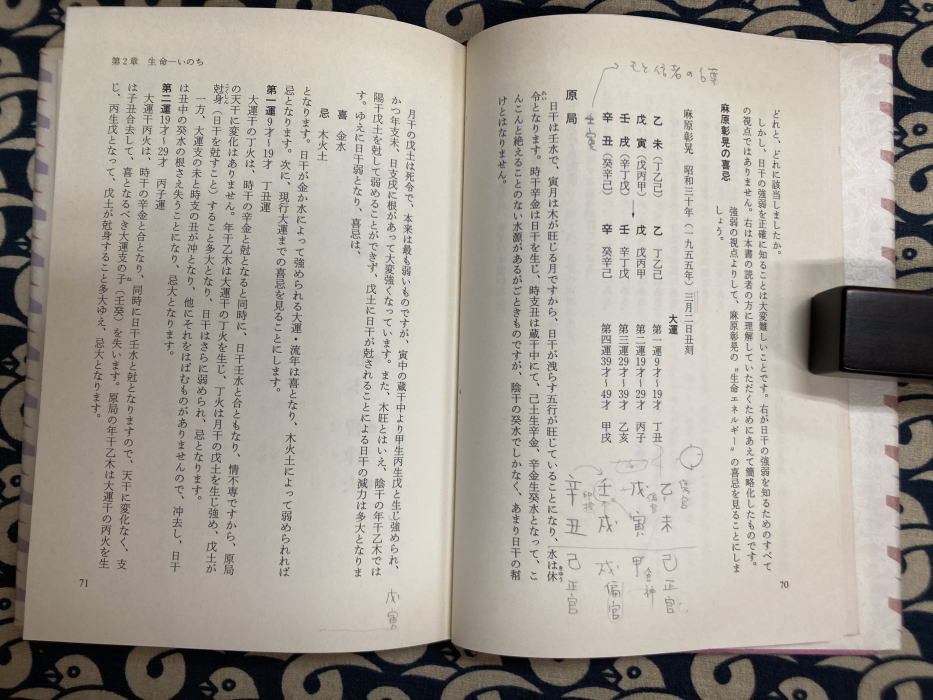 どれと、どれに該当しましたか。
しかし、日干の強弱を正確に知ることは大変難しいことです。右が日干の強弱を知るためのすべて
の視点ではありません。右は本書の読者の方に理解していただくためにあえて簡略化したものです。
強弱の視点よりして、麻原彰晃の〝生命エネルギー〟の喜忌を見ることにしま
しょう。
麻原彰晃の喜忌
麻原彰晃 昭和三十年(一九五五年)三月二日丑刻
大運
乙 未(丁乙己) 乙 丁乙己 第一運9才〜19才 丁丑
戊 寅(戊丙甲) 戊 戊丙甲 第二運19才〜29才 丙子
壬 戌(辛丁戊) 壬 辛丁戊 第三運29才〜39才 乙亥
辛 丑(癸辛己) 辛 癸辛己 第四運39才〜49才 甲戌
原 局
日干は壬水で、寅月は木が旺じる月ですから、日干が洩らす五行が旺じていることになり、水は休
令となります。時干辛金は日干を生じ、時支丑は蔵干中にて、己土生辛金、辛金生癸水となって、こ
んこんと絶えることのない水源があるがごときものですが、陰干の癸水でしかなく、あまり日干の幇
けとはなりません。
乙 未 己 正官
戊 寅 甲 食神
壬 戌 戊 偏官
辛 丑 己 正官
印綬
偏官
70
第2章 生命―いのち
月干の戊土は死令で、本来は最も弱いものですが、寅中の蔵干中より甲生丙生戊と生じ強められ、
かつ年支未、日支戌に根があって大変強くなっています。また、木旺とはいえ、陰干の年干乙木では
陽干戊土を尅して弱めることができず、戊土に日干が尅されることによる日干の減力は多大となりま
す。ゆえに日干弱となり、喜忌は、
喜 金水
忌 木火土
となります。日干が金か水によって強められる大運・流年は喜となり、木火土によって弱められれば
忌となります。次に、現行大運までの喜忌を見ることにします。
第一運9才〜19才 丁丑運
大運干の丁火は、時干の辛金と尅となると同時に、日干壬水と合ともなり、情不専ですから、原局
の天干に変化はありません。年干乙木は大運干の丁火を生じ、丁火は月干の戊土を生じ強め、戊土が
尅身(日干を尅すこと)すること多大となり、日干はさらに弱められ、忌となります。
一方、大運支の未と時支の丑が冲となり、他にそれをはばむものがありませんので、冲去し、日干
は丑中の癸水の根さえ失うことになり、忌大となります。
第二運19才〜29才 丙子運
大運干丙火は、時干の辛金と合となり、同時に日干壬水と尅となりますので、天干に変化なく、支
は子丑合去して、喜となるべき大運支の子(壬癸)を失います。原局の年干乙木は大運干の丙火を生
じ、丙生戊となって、戊土が尅身すること多大ゆえ、忌大となります。
戊寅
71